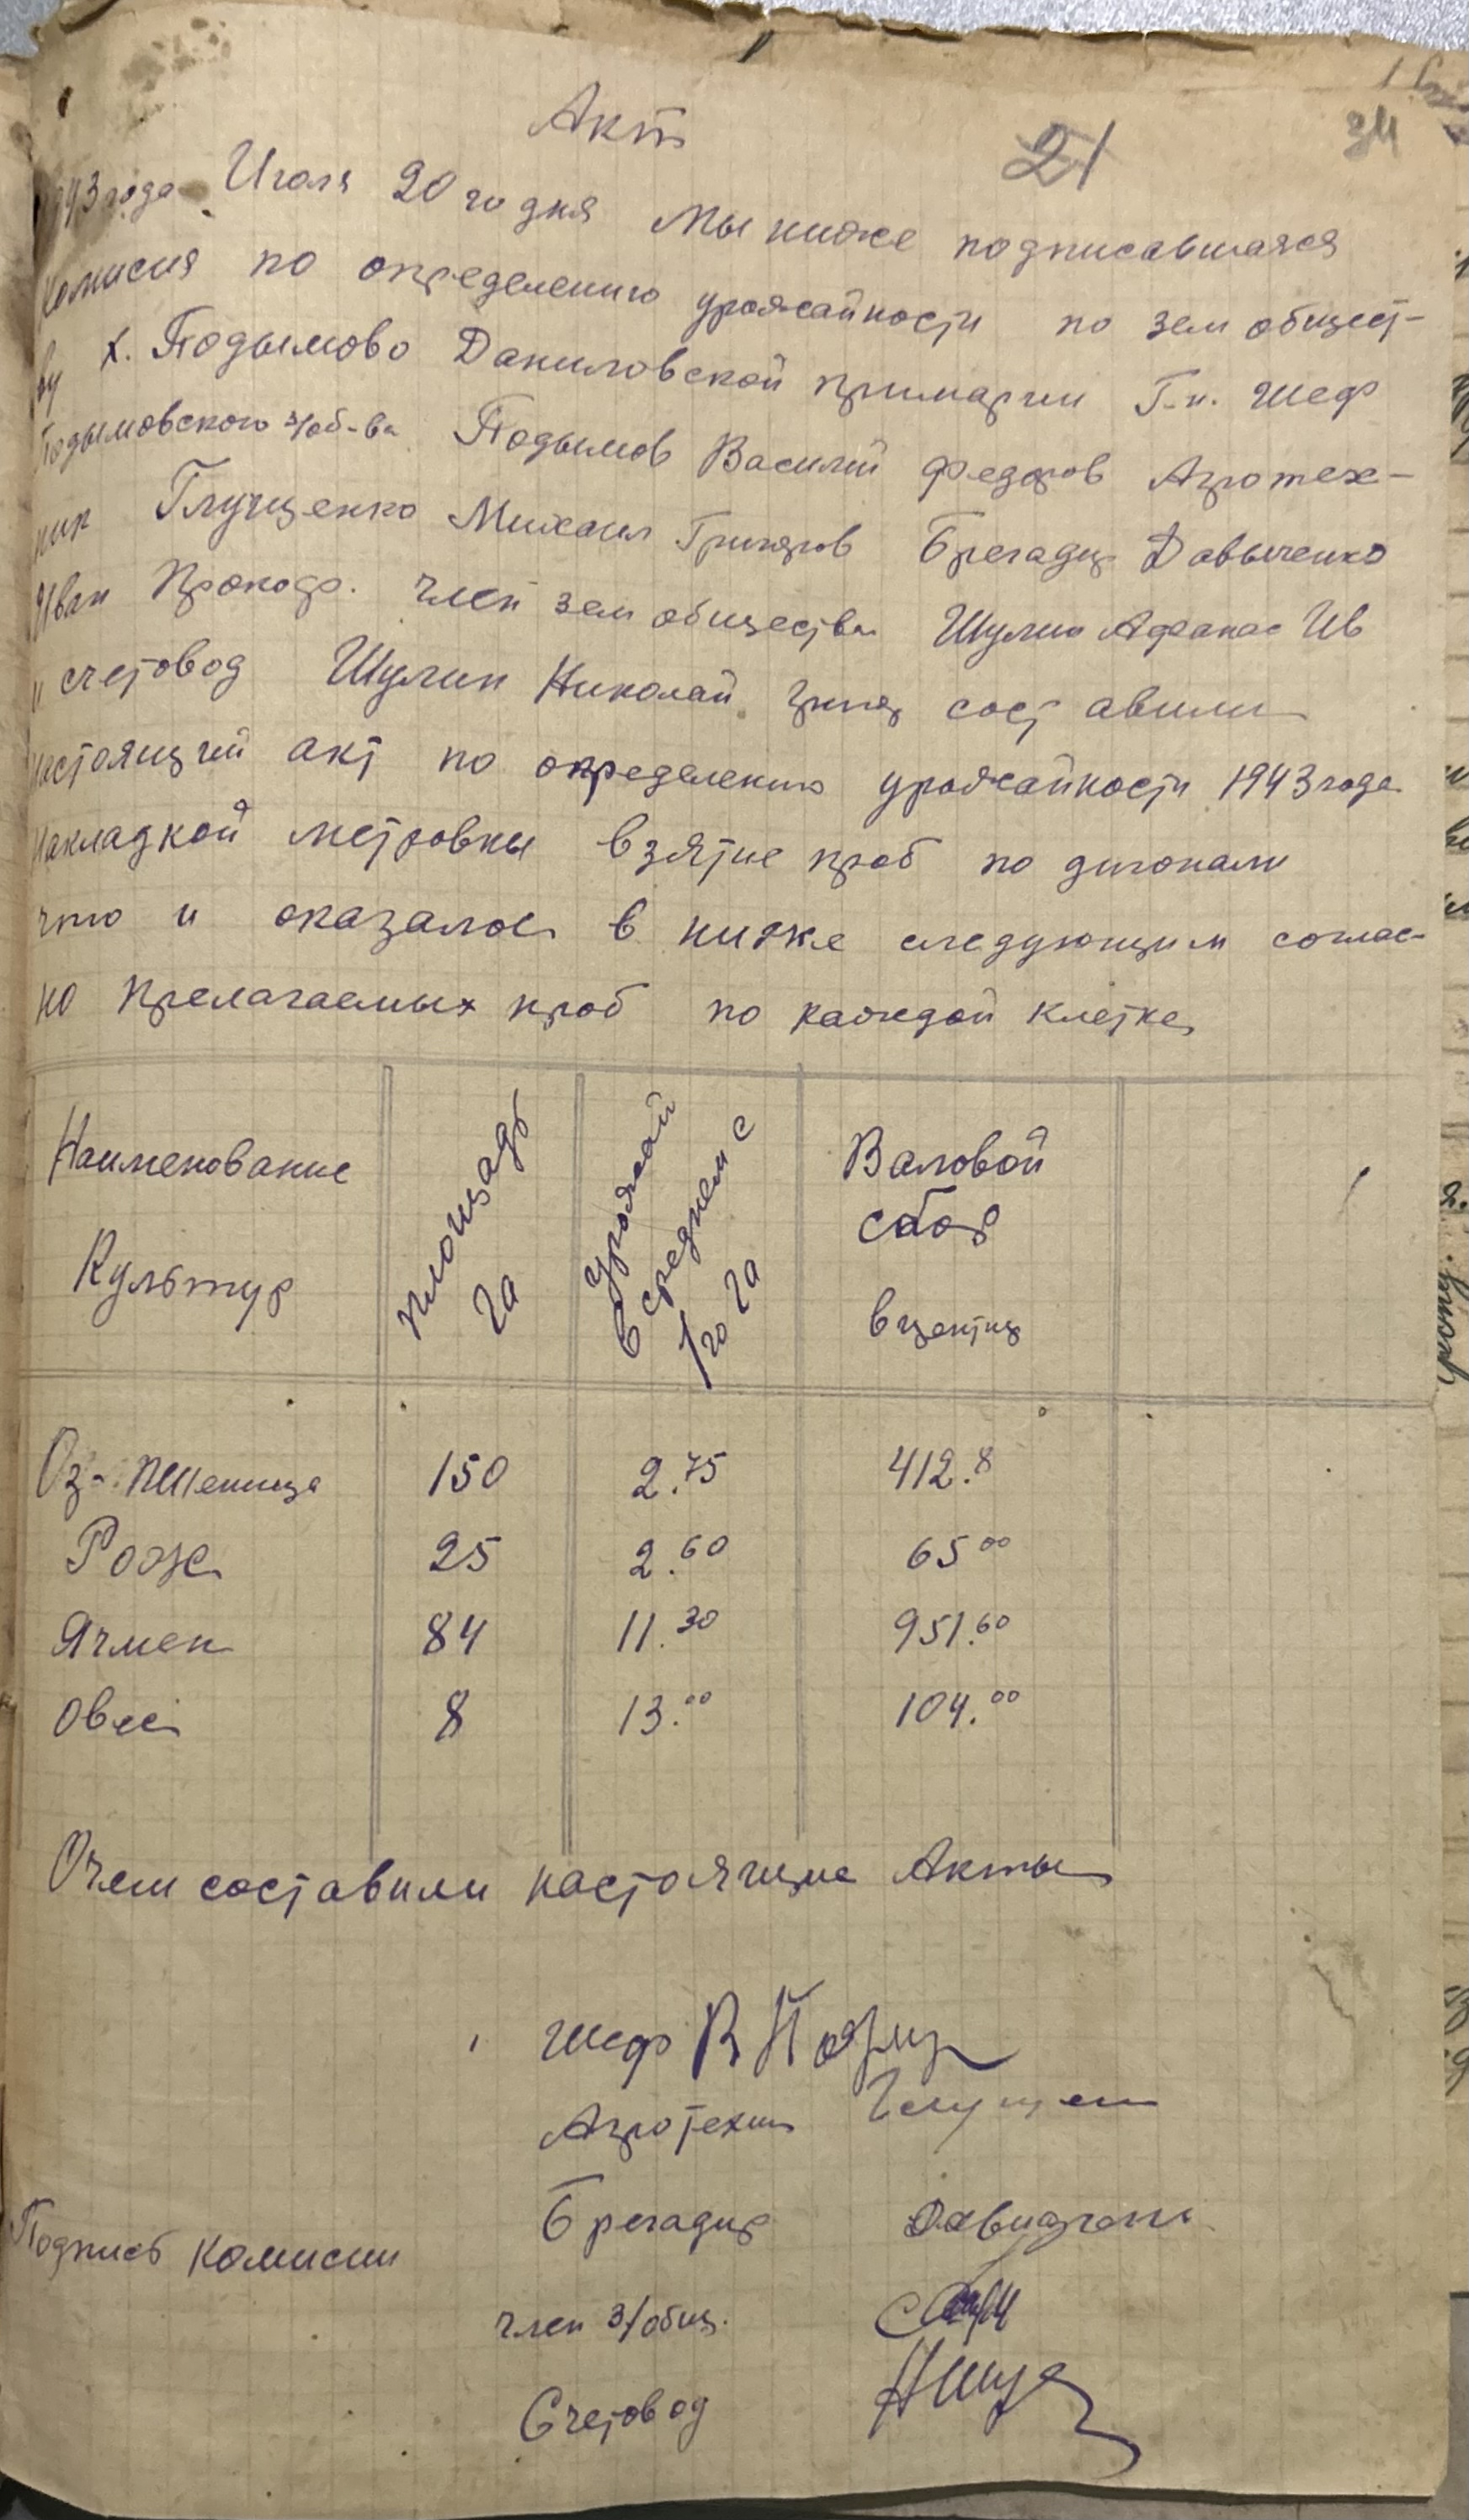 Акт
21
34
1943 года Июля 20 го дня Мы ниже подписавшаяся
Комисия по определению урожайности по зем общест-
ву х. Подымово Даниловской примарии Г-н. Шеф
Подымовского з/об-ва Подымов Василий Федоров Агротех-
ник Глущенко Михаил Григоров Брегадир Давыченко
Иван Прокоф. член зем общества Шулик Афанас Ив
и счетовод Шулик Николай Григ составили
настоящий акт по определению урожайности 1943 года
накладкой метровки взятие проб по дигонали
что и оказалос в ниже следующим соглас-
но прелагаемых проб по каждой клетке
Наименование Культур
площадь га
урожай в среднем с 1 го га
Валовой сбор в центнр
Оз-пшеница 150 2.75 412.8
Рожь 25 2.60 65 00
Ячмен 84 11.30 951.60
Овес 8 13.00 104.00
Очем составили настоящие Акты
шеф В
Агротехник Глущен
Брегадир
Подпись комисии
член з/общ.
Счетовод